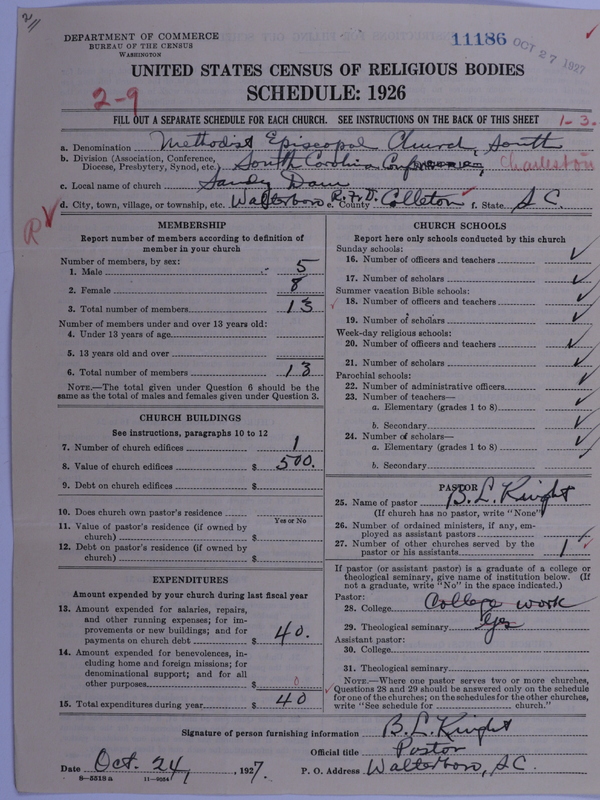 2//
DEPARTMENT OF COMMERCE
BUREAU OF THE CENSUS
WASHINGTON
11186 OCT 27 1927
UNITED STATES CENSUS OF RELIGIOUS BODIES
SCHEDULE: 1926
2-9
FILL OUT A SEPARATE SCHEDULE FOR EACH CHURCH. SEE INSTRUCTIONS ON THE BACK OF THIS SHEET 1-3.
a. Denomination Methodist Episcopal Church, South
b. Division (Association, Conference, Diocese, Presbytery, Synod, etc.) South Carolina Conference, Charleston
c. Local name of church Sandy Dam
d. City, town, village, or township, etc. Walterboro R.F.D. e. County Colleton f. State S.C.
R
MEMBERSHIP
Report number of members according to definition of
member in your church
Number of members, by sex:
1. Male 5
2. Female 8
3. Total number of members 13
Number of members under and over 13 years old:
4. Under 13 years of age
5. 13 years old and over
6. Total number of members 13
NOTE.—The total given under Question 6 should be the
same as the total of males and females given under Question 3.
CHURCH BUILDINGS
See instructions, paragraphs 10 to 12
7. Number of church edifices 1
8. Value of church edifices $ 500.
9. Debt on church edifices $
10. Does church own pastor's residence
Yes or No
11. Value of pastor's residence (if owned by
church) $
12. Debt on pastor's residence (if owned by
church) $
EXPENDITURES
Amount expended by your church during last fiscal year
13. Amount expended for salaries, repairs,
and other running expenses; for im-
provements or new buildings; and for
payments on church debt $ 40.
14. Amount expended for benevolences, in-
cluding home and foreign missions; for
denominational support; and for all
other purposes $ 0
15. Total expenditures during year $ 40
CHURCH SCHOOLS
Report here only schools conducted by this church
Sunday schools:
16. Number of officers and teachers
17. Number of scholars
Summer vacation Bible schools:
18. Number of officers and teachers
19. Number of scholars
Week-day religious schools:
20. Number of officers and teachers
21. Number of scholars
Parochial schools:
22. Number of administrative officers
23. Number of teachers—
a. Elementary (grades 1 to 8)
b. Secondary
24. Number of scholars—
a. Elementary (grades 1 to 8)
b. Secondary
PASTOR
25. Name of pastor B. L. Knight
(If church has no pastor, write "None")
26. Number of ordained ministers, if any, em-
ployed as assistant pastors
27. Number of other churches served by the
pastor or his assistants 1
If pastor (or assistant pastor) is a graduate of a college or
theological seminary, give name of institution below. (If
not a graduate, write "No" in the space indicated.)
Pastor:
28. College College work
29. Theological seminary Yes
Assistant pastor:
30. College
31. Theological seminary
NOTE.—Where one pastor serves two or more churches,
Questions 28 and 29 should be answered only on the schedule
for one of the churches; on the schedules for the other churches,
write "See schedule for church."
Signature of person furnishing information B. L. Knight
Official title Pastor
Date Oct. 24, 1927. P. O. Address Walterboro, S.C.
8-5318a 11-9034